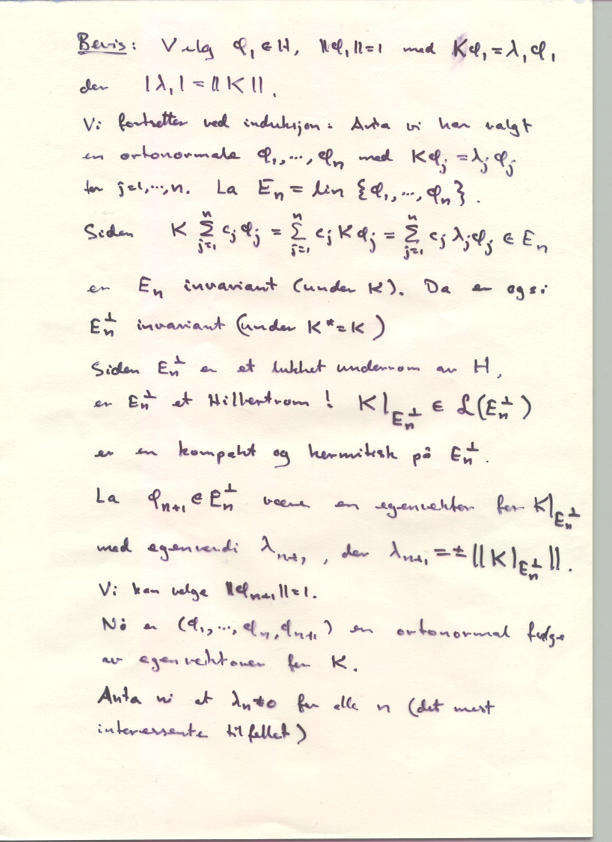 Bevis: Velg φ₁ ∈ H, ‖φ₁‖ = 1 med Kφ₁ = λ₁φ₁
der |λ₁| = ‖K‖.
Vi fortsetter ved induksjon: Anta vi har valgt
en ortonormale φ₁,…,φₙ med Kφⱼ = λⱼφⱼ
for j=1,…,n. La Eₙ = lin {φ₁,…,φₙ}.
Siden K ∑ⱼ₌₁ⁿ cⱼφⱼ = ∑ⱼ₌₁ⁿ cⱼKφⱼ = ∑ⱼ₌₁ⁿ cⱼλⱼφⱼ ∈ Eₙ
er Eₙ invariant (under K). Da er også
Eₙ^⊥ invariant (under K* = K)
Siden Eₙ^⊥ er et lukket underrom av H,
er Eₙ^⊥ et Hilbertrom! K|_{Eₙ^⊥} ∈ ℒ(Eₙ^⊥)
er en kompakt og hermitisk på Eₙ^⊥.
La φₙ₊₁ ∈ Eₙ^⊥ være en egenvektor for K|_{Eₙ^⊥}
med egenverdi λₙ₊₁, der λₙ₊₁ = ±‖K|_{Eₙ^⊥}‖.
Vi kan velge ‖φₙ₊₁‖=1.
Nå er (φ₁,…,φₙ,φₙ₊₁) en ortonormal følge
av egenvektorer for K.
Anta nå at λₙ≠0 for alle n (det mest
interessante tilfellet)